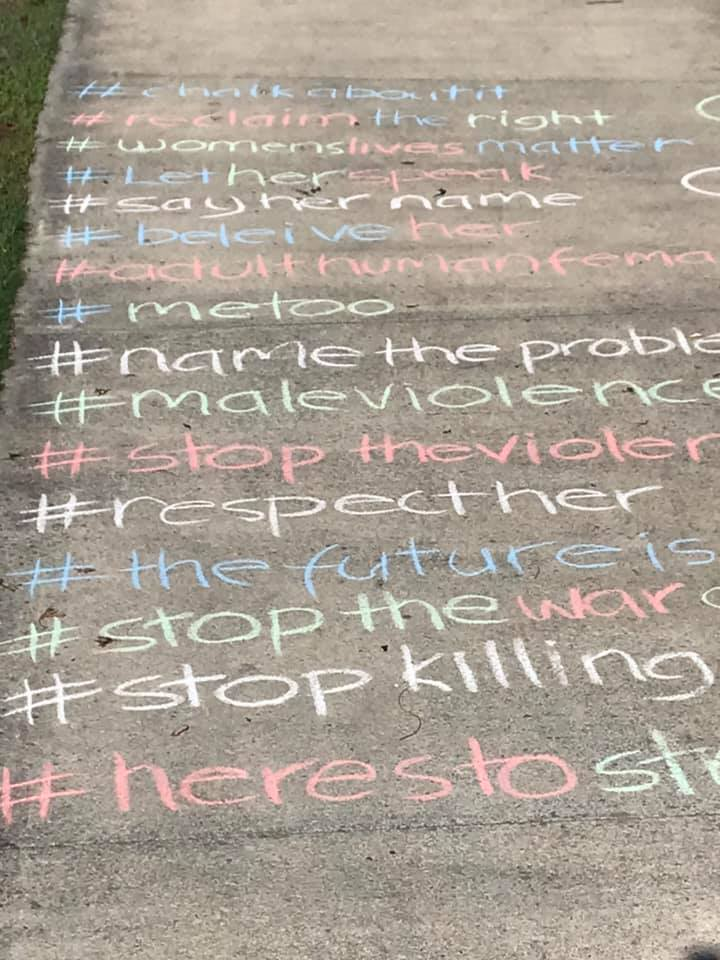 # chalk aboutit
# reclaim the right
# womenslives matter
# Let her speak
# say her name
# beleive her
#adulthumanfema
# metoo
#name the proble
#maleviolence
# stop theviolen
#respect her
# the future is
# stop the war
# stop killing
# heres to str